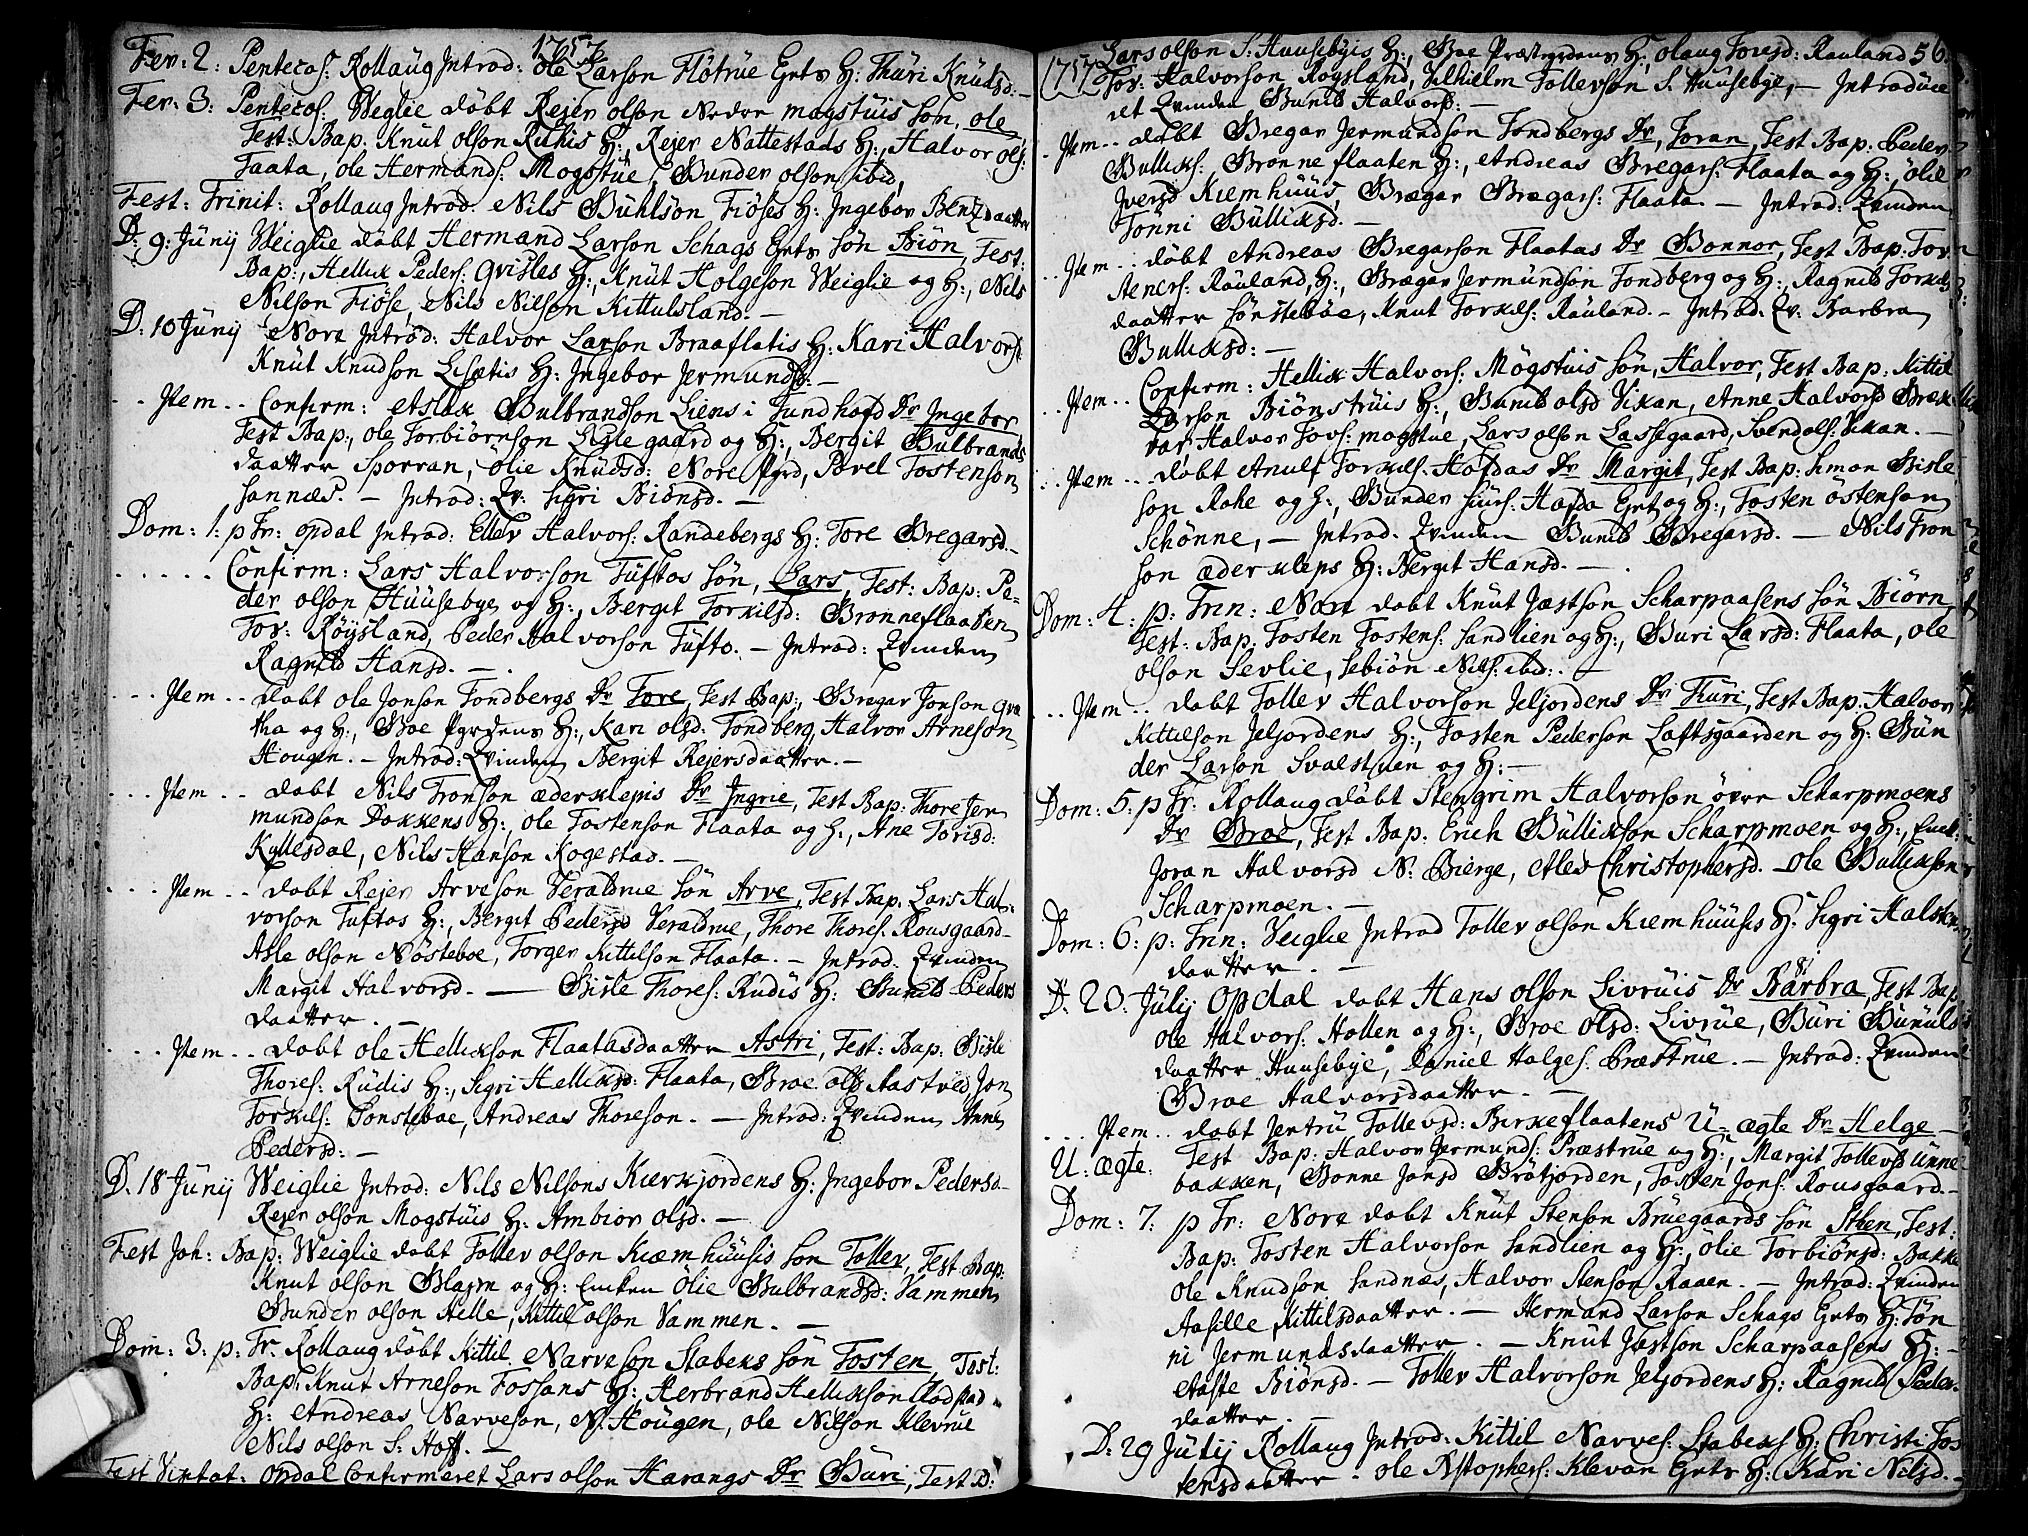 1757
Fer: 2: Pentecos: Rollaug Introd: ole Larson Flötrue Grts H: Thuri Knudsd:
Fer: 3: Pentecos: Weglie döbt Rejer olson Nedre mogstuis sön, ole
Test: Bap: Knut olson Ruhis H:, Rejer Nattestads H:, Halvor ols:
Faata, ole Hermands: Mogstue, Gunder olson ibid,
Fest: Trinit: Rollaug Introd: Nils Guhlson Fiöses H: Ingebor Bentzdaatter
D: 9: Junij Weiglie döbt Hermand Larson Schags Grts sön Biön, Test:
Bap:, Hellik Peders: Qvisles H:, Knut Holgeson Weiglie og H:, Nils
Nilson Fiöse, Nils Nilson Kittulsland. —
D: 10 Junij Nore Introd: Halvor Larson Braaflatis H: Kari Halvorsd
Knut Knudson Lisetis H: Ingebor Jermundsd: —
- - Item - - Confirm: Aslak Gulbrandson Liens i Tundhofd Dr Ingebor
Test Bap:, ole Torbiörnson Ligle gaard og H:, Bergit Gulbrands
daatter Sporran, Olie Knudsd: Nore Pgrd, Povel Tostenson
Sannæs. — Introd: Qv: Sigri Biönsd. —
Dom: 1: p Tr: opdal Introd: Ellev Halvors: Randebergs H: Tore Bregarsd. —
. . . . . Confirm: Lars Halvorson Tuftos sön, Lars, Test: Bap: Pe-
der olson Huusebye og H:, Bergit Torkilsd: Brönneflaaten
Tov: Röysland, Peder Halvorson Tufto. — Introd: Qvinden
Ragnild Hansd. —
- - - Item - - Döbt ole Jonson Tondbergs Dr Tore, Test Bap:, Bregar Jonson Gvra
tha og H:, Groe Pgrdens H:, Kari olsd: Tondberg, Halvor Arneson
Hougen. — Introd: Qvinden Bergit Rejersdaatter. —
- - - Item - - döbt Nils Tronson æderklepis Dr Ingrie, Test Bap: Thore Jer
mundson Bakkens H:, ole Tostenson Flaata og H:, Ane Torisd:
Kyllesdal, Nils Hanson Kogestad. —
- - - Item - - döbt Rejer Arveson Veraldrue sön Arve, Test Bap: Lars Hal-
vorson Tuftos H:, Bergit Pedersd Veraldrue, Thore Thores: Rousgaard
Asle olson Nösteboe, Torger Kittilson Flaata. — Introd: Qvinden
Margit Halvorsd. — Gisle Thores: Rudis H: Gunild Peders
daatter. —
- - - Item - - döbt ole Hellikson Flaatas daatter Astri, Test: Bap: Gisle
Thores: Rudis H:, Sigri Helliksd: Flaata, Groe olsd Aastved Jon
Torkils: Ponsteboe, Andreas Thoreson. — Introd: Qvinden Anne
Pedersd: —
D. 18 Junij Weiglie Introd: Nils Nilsons Kierkjordens H: Ingebor Pedersd-
Rejer olson Mogstuis H: Ambior olsd. —
Fest Joh: Bap: Weiglie döbt Tollev olson Kiæmhuusis sön Tollev, Test Bap:
Knut olson Glaim og H: Enken Olie Gulbrandsd: Vammen
Gunder olson Helle, Kittil olson Vammen. —
Dom: 3: p: Tr: Rollaug döbt Kittil Narveson Stabeks sön Tosten, Test:
Bap: Knut Arneson Fossans H:, Herbrand Hellikson
H: Andreas Narveson, N: Hougen, ole Nilson Klevrue
Nils olson S: Hoff. —
Fest Visitat: Opdal Confirmeret Lars olson Harangs Dr Guri, Test B:
56.
1757 Lars olson S: Huusebyis H:, Groe Præstegrdens H:, olaug Toresd: Rauland
Tov: Halvorson Rogsland, Vilhielm Tollevson S. Huusebye, — Introduce
ret Qvinden Gunild Halvorsd: —
- Item - - döbt Bregar Jermundson Tondbergs Dr, Joran, Test Bap: Peder
Gulliks: Brönneflaaten H:, Andreas Bregars: Flaata og H:, Olie
Iversd Kiemhuus, Brægar Brægars: Flaata. — Introd: Qvinden
Tönni Gulliksd. —
- - Item - - döbt Andreas Bregarson Flaatas Dr Gonnor, Test Bap: Tov
Steners: Rauland, H:, Brægar Jermundson Tondberg og H:, Ragnild Torkils
daatter Sönsteböe, Knut Torkils: Rauland. — Introd: Qv: Barbra
Gulliksd: —
- - Item - - Confirm: Hellik Halvors: Mogstuis sön, Halvor, Test Bap: Kittil
Larson Biönstruis H:, Gunild olsd Vikan, Anne Halvorsd Bræk
var, Halvor Tovs: mogstue, Lars olson Lassegaard, Svend ols: Vikan. —
- - Item - - - döbt Anulf Torkils: Hofdas Dr Margit, Test Bap: Simon Gisle
son Rohe og H:, Gunder Siurs: Hofda Grt og H:, Tosten östenson
Schönne, — Introd. Qvinden Gunild Bregarsd. — Nils Tron
son æderkleps H: Bergit Hansd. —
Dom: 4: p: Trin: Nore döbt Knut Jæstson Scharpaasens sön Biörn,
Test: Bap: Tosten Tostens: Sandlien og H:, Guri Larsd: Flaata, ole
olson Sevlie, Sebiön Nils: ibid: —
- - Item - - döbt Tollev Halvorson Jeljordens Dr Thuri, Test Bap: Halvor
Kittilson Jeljordens H:, Tosten Pederson Laftsgaarden og H: Gun
der Larson Svalestuen og H: —
Dom: 5: p Tr: Rollaug döbt Stengrim Halvorson övre Scharpmoens
Dr Groe, Test Bap: Erich Gullikson Scharpmoen og H:,
Joran Halvorsd N: Bierge, Aled Christophersd. ole Gullikson
Scharpmoen. —
Dom: 6: p: Trin: Veiglie Introd Tollev olson Kiemhuusis H: Sigri Halsten
daatter. —
D: 20: Julij Opdal döbt Hans olson Livruis Dr Barbra, Test Bap
ole Halvors: Hollen og H:, Groe olsd: Livrue, Guri Gunuls
daatter Huusebye, Daniel Holges: Præstrue. — Introd: Qvinden
Groe Halvorsdaatter. —
- - - Item - - döbt Jertru Tollevsd: Birkeflaatens U-ægte Dr Helge —
U: ægte: Test Bap: Halvor Jermunds: Præstrue og H:, Margit Tollevsd Unne
bakken, Gonne Jonsd Brötjorden, Tosten Jons: Rousgaard. —
Dom: 7: p Tr: Nore döbt Knut Stenson Bruegaards sön Steen, Test:
Bap: Tosten Halvorson Sandlien og H:, Olie Torbiönsd: Bakke
ole Knudson Sandnæs, Halvor Stenson Raaen. — Introd: Qvinden
Aasille Kittilsdaatter. — Hermand Larson Schags Grts H: Tön
ni Jermundsdaatter. — Knut Jæstson Scharpaasens H: —
Aaste Biönsd. — Tollev Halvorson Jeljordens H: Ragnild Peder-
daatter. —
D: 29 Julij Rollaug Introd: Kittil Narves: Stabeks H: Christi Tos
tensdaatter. ole Xstophers: Klevan Grts H: Kari Nilsd. —